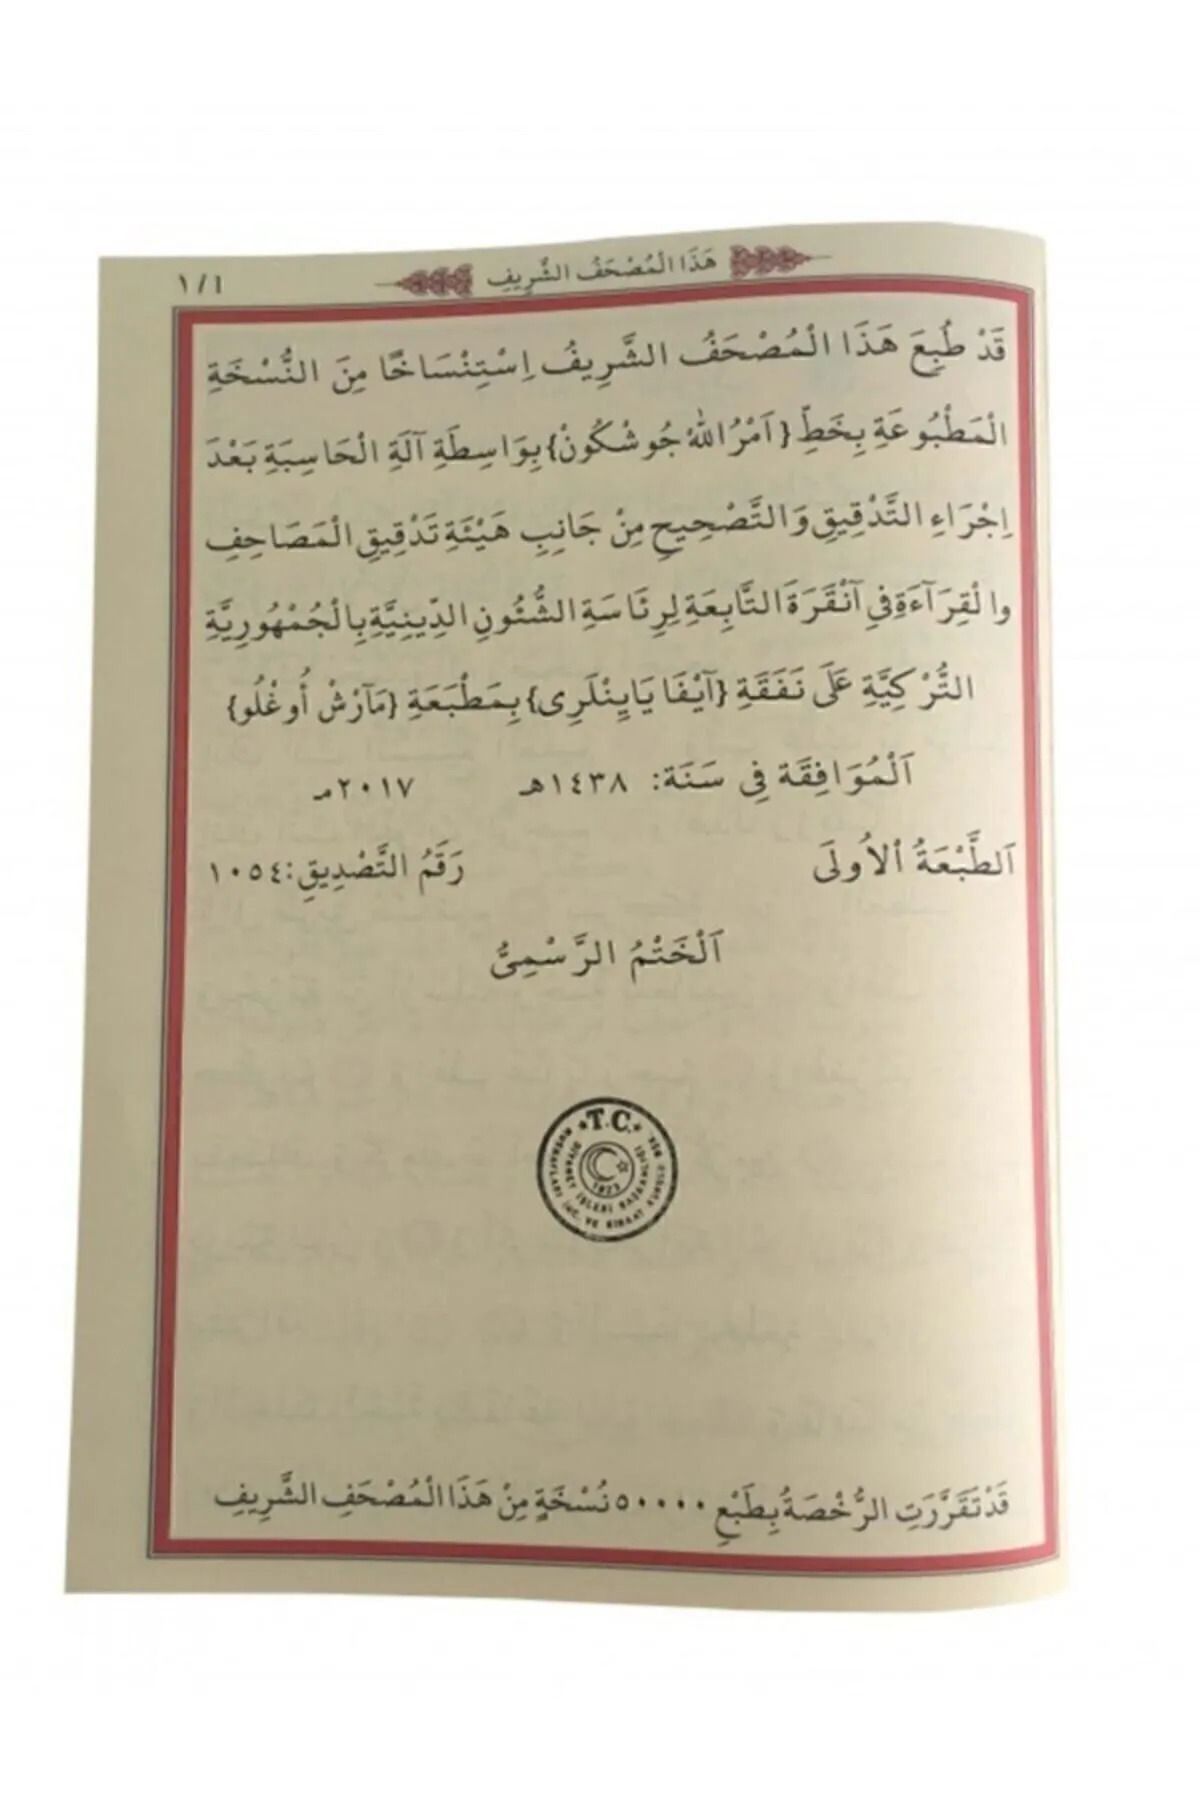 هَذَا الْمُصْحَفُ الشَّرِيفِ
١/١
قَدْ طُبِعَ هَذَا الْمُصْحَفُ الشَّرِيفُ اِسْتِنْسَاخًا مِنَ النُّسْخَةِ
الْمَطْبُوعَةِ بِخَطِّ {اَمْرُ اللّٰهْ جُوشْكُونْ} بِوَاسِطَةِ آلَةِ الْحَاسِبَةِ بَعْدَ
اِجْرَاءِ التَّدْقِيقِ وَالتَّصْحِيحِ مِنْ جَانِبِ هَيْئَةِ تَدْقِيقِ الْمَصَاحِفِ
والْقِرَآءَةِ فِي آنْقَرَةَ التَّابِعَةِ لِرِئَاسَةِ الشُّئُونِ الدِّينِيَّةِ بِالْجُمْهُورِيَّةِ
التُّرْكِيَّةِ عَلَى نَفَقَةِ {آيْفَا يَايِنْلَرِى} بِمَطْبَعَةِ {مَآرْشْ أُوغْلُو}
اَلْمُوَافِقَة فِي سَنَة: ١٤٣٨هـ ٢٠١٧مـ
اَلطَّبْعَةُ الْاُولَى رَقَمُ التَّصْدِيقِ: ١٠٥٤
اَلْخَتْمُ الرَّسْمِىُّ
T.C.
DİYANET İŞLERİ BAŞKANLIĞI
MUSHAFLARI İNC. VE KIRAAT KURULU BŞK.
1923
قَدْ تَقَرَّرَتِ الرُّخْصَةُ بِطَبْعِ ٥٠٠٠٠ نُسْخَةٍ مِنْ هَذَا الْمُصْحَفِ الشَّرِيفِ